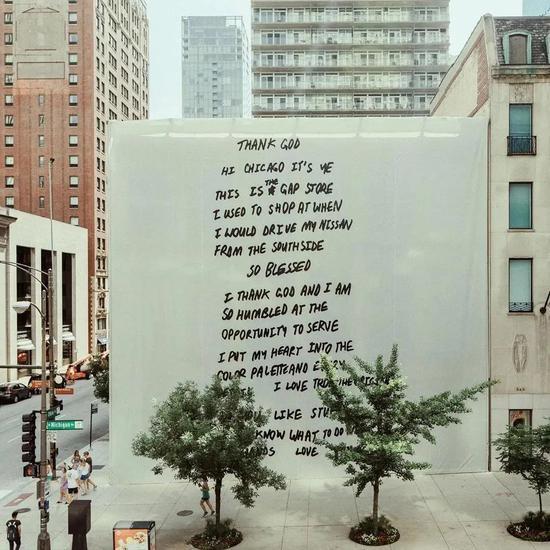 THANK GOD
HI CHICAGO IT'S YE
THIS IS THE GAP STORE
I USED TO SHOP AT WHEN
I WOULD DRIVE MY NISSAN
FROM THE SOUTHSIDE
SO BLESSED
I THANK GOD AND I AM
SO HUMBLED AT THE
OPPORTUNITY TO SERVE
I PUT MY HEART INTO THE
COLOR PALETTE AND
I LOVE
LIKE
KNOW WHAT TO DO
LOVE
Michigan